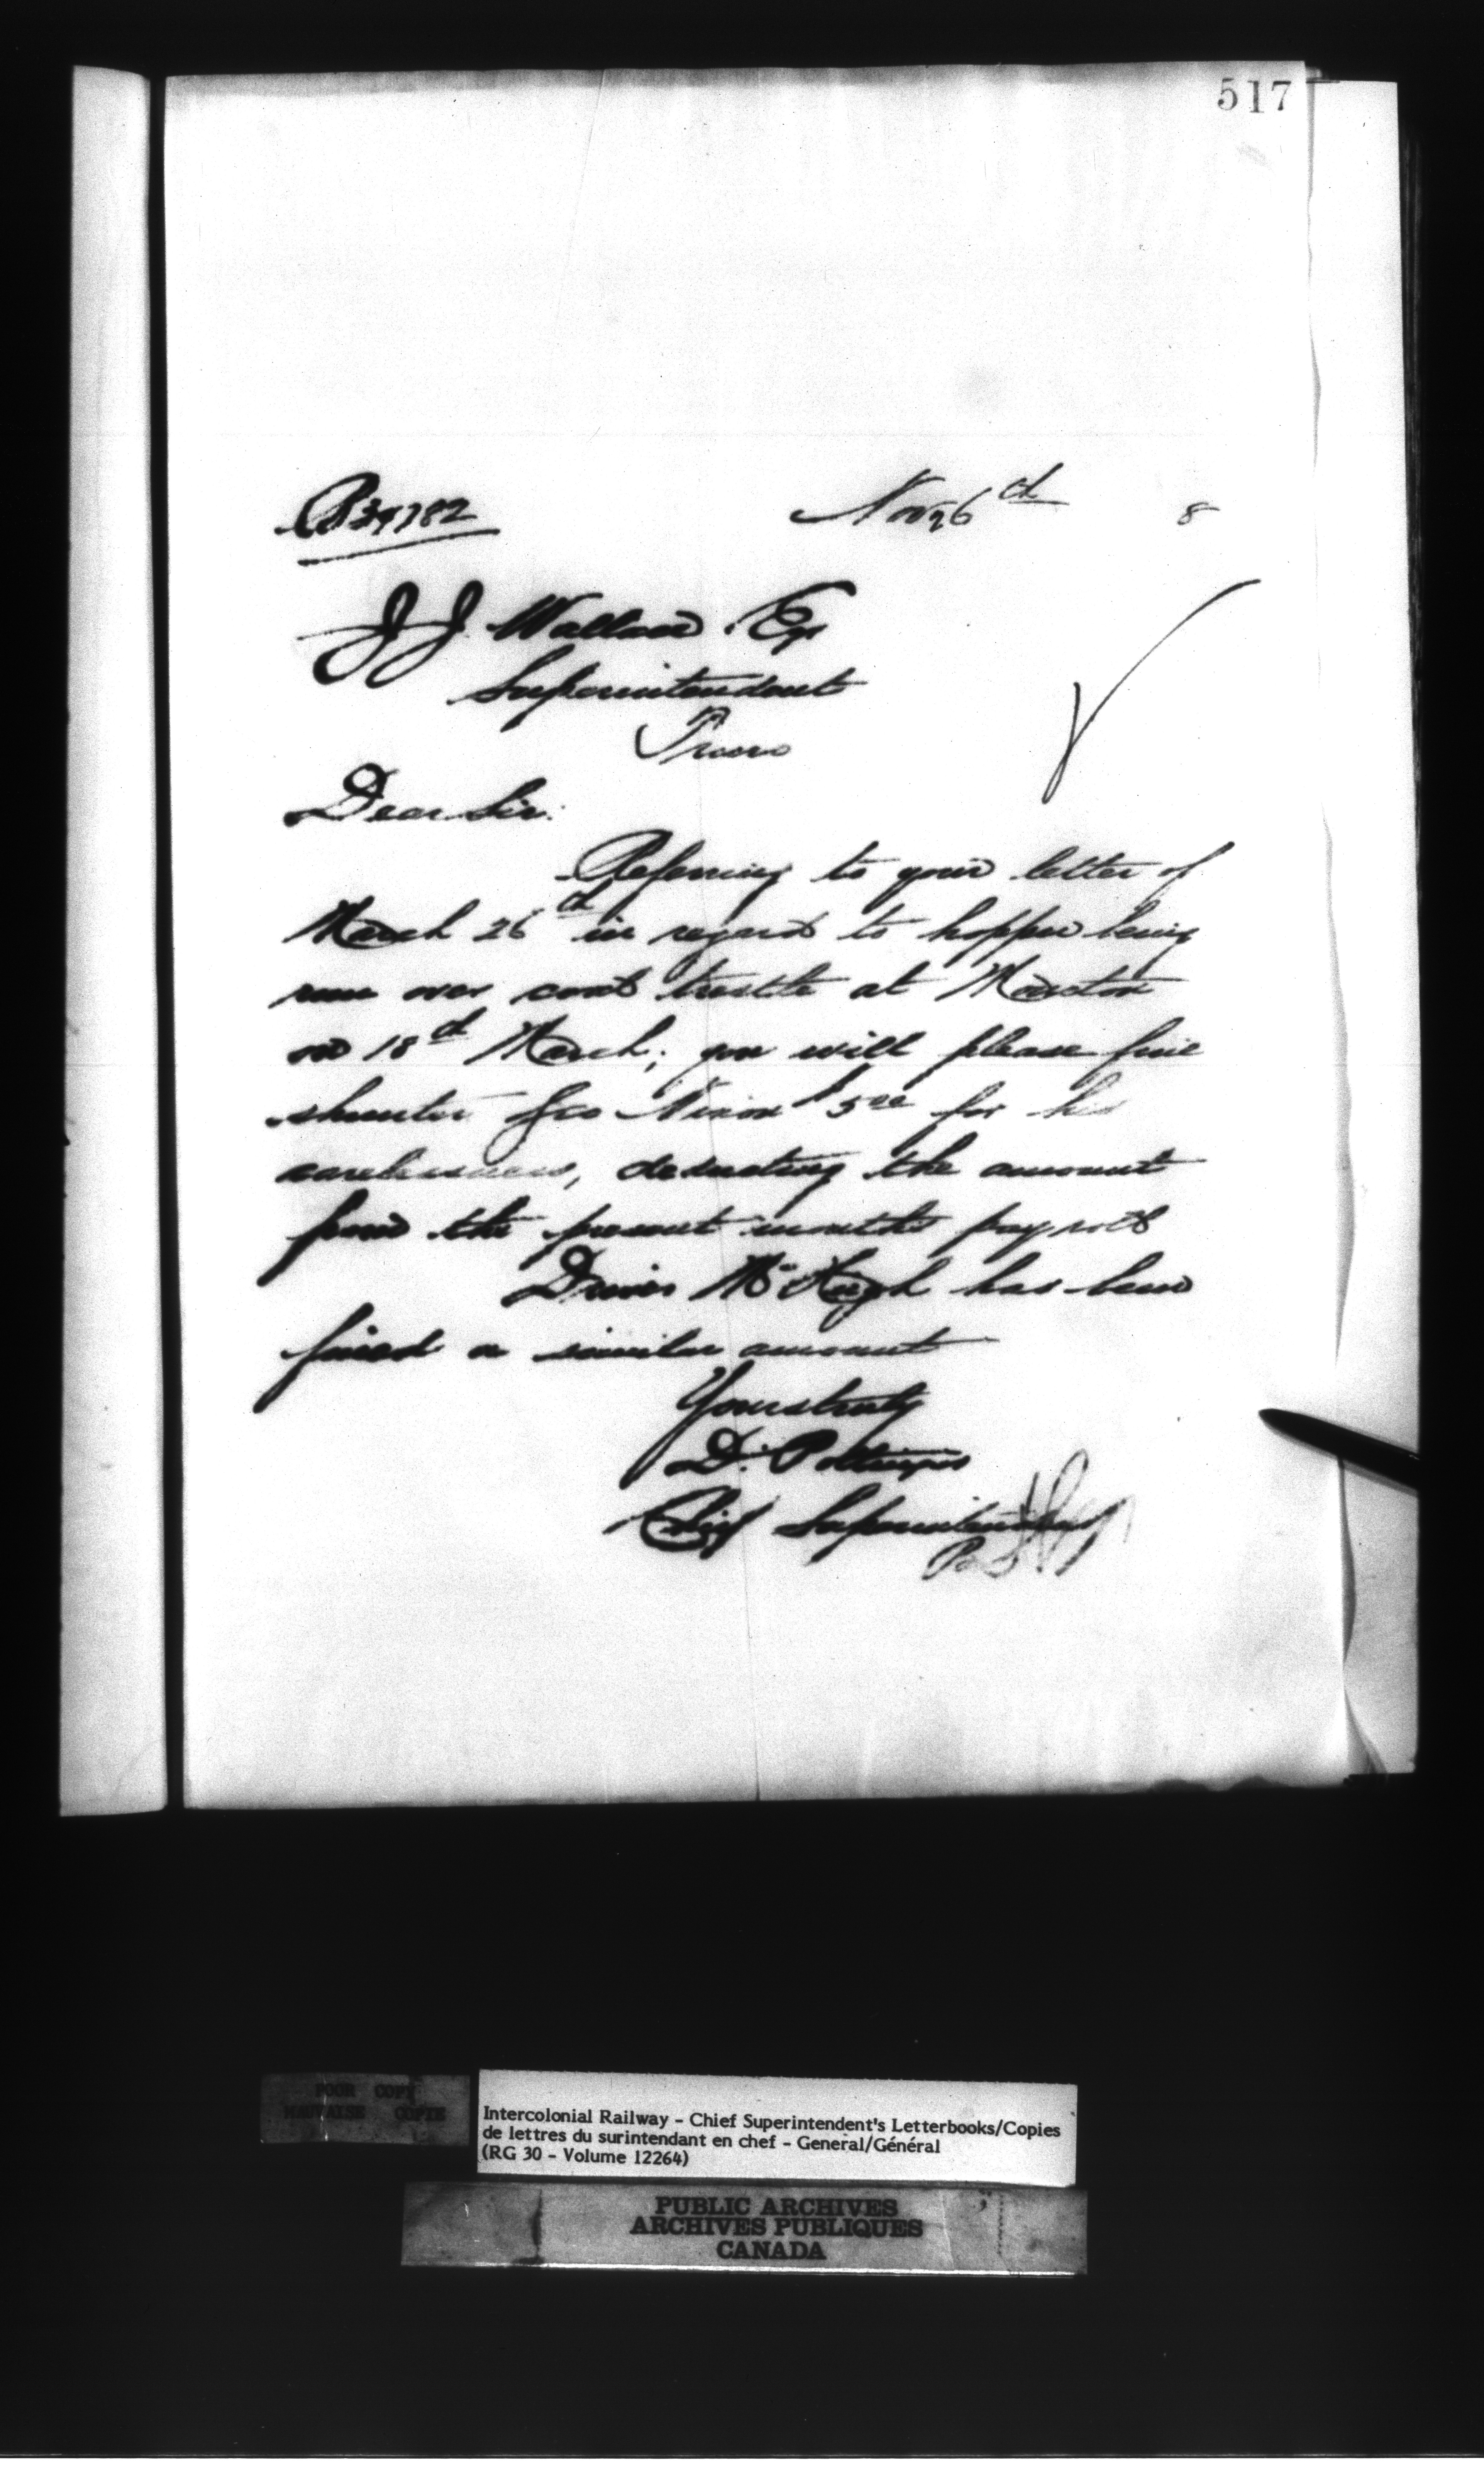 517
Nov 26th 8
J J Wallace Esq
Superintendent
Truro
Dear Sir:
Referring to your letter of
March 26th in regard to hopper being
run over coal trestle at Moncton
on 18th March; you will please fine
shunter Geo Nixon $5.00 for his
carelessness, deducting the amount
from the present months pay roll
Driver McHugh has been
fined a similar amount
Yours truly
D. Pottinger
Chief Superintendent
POOR COPY
MAUVAISE COPIE
Intercolonial Railway - Chief Superintendent's Letterbooks/Copies
de lettres du surintendant en chef - General/Général
(RG 30 - Volume 12264)
PUBLIC ARCHIVES
ARCHIVES PUBLIQUES
CANADA